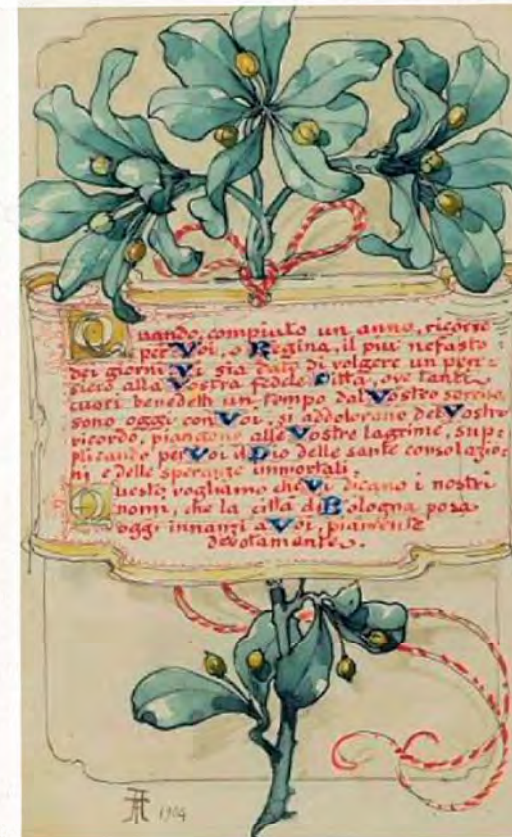 Quando, compiuto un anno, ricorre
per Voi, o Regina, il più nefasto
dei giorni Vi sia dato di volgere un pen=
siero alla Vostra fedele Città, ove tanti
cuori benedetti un tempo dal Vostro sorriso,
sono oggi con Voi, si addolorano del Vostro
ricordo, piangono alle Vostre lagrime, sup=
plicando per Voi il Dio delle sante consolazio=
ni e delle speranze immortali.
Questo vogliamo che Vi dicano i nostri
nomi, che la città di Bologna posa
oggi innanzi a Voi, piamente
devotamente.
1904